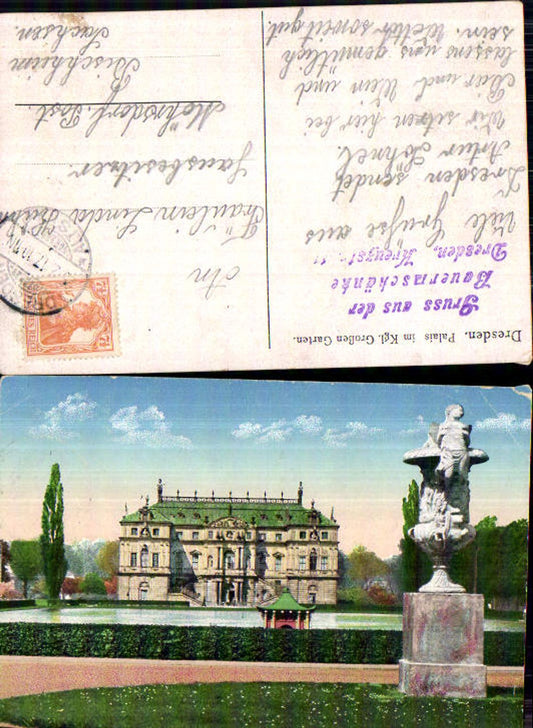 Dresden. Palais im Kgl. Großen Garten.
Gruss aus der
Bauernschänke
Dresden, Kreuzstr. 11
Viele Grüße aus
Dresden sendet
Artur Sohnel.
Wir sitzen hier bei
Bier und Wein und
lassens uns gemütlich
sein. Wetter soweit gut.
An
Fräulein Linda
Hausbesitzer
Möhrsdorf, Post
Bischheim
Sachsen.